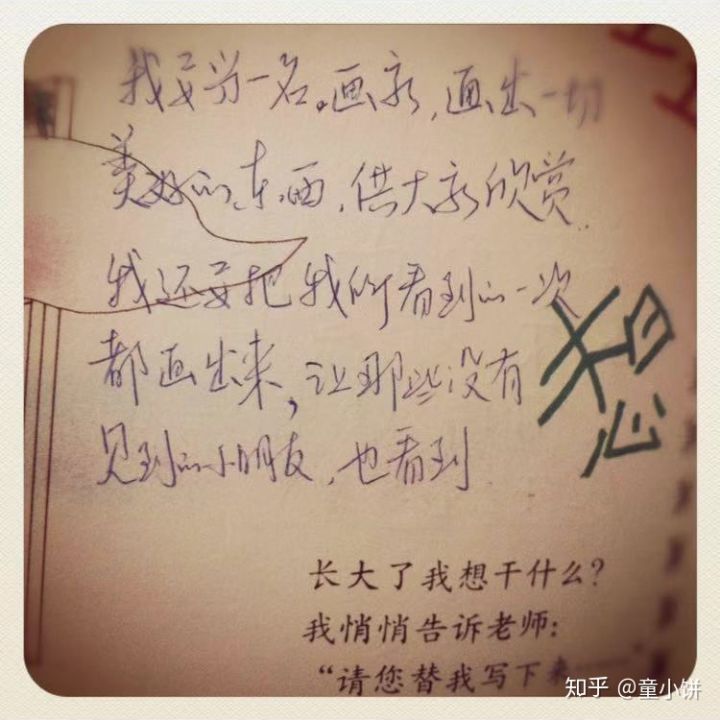 我要当一名。画家，画出一切
美好的东西，供大家欣赏。
我还要把我所看到的一次
都画出来，让那些没有
见到的小朋友，也看到
长大了我想干什么？
我悄悄告诉老师：
“请您替我写下来……”
知乎 @童小饼